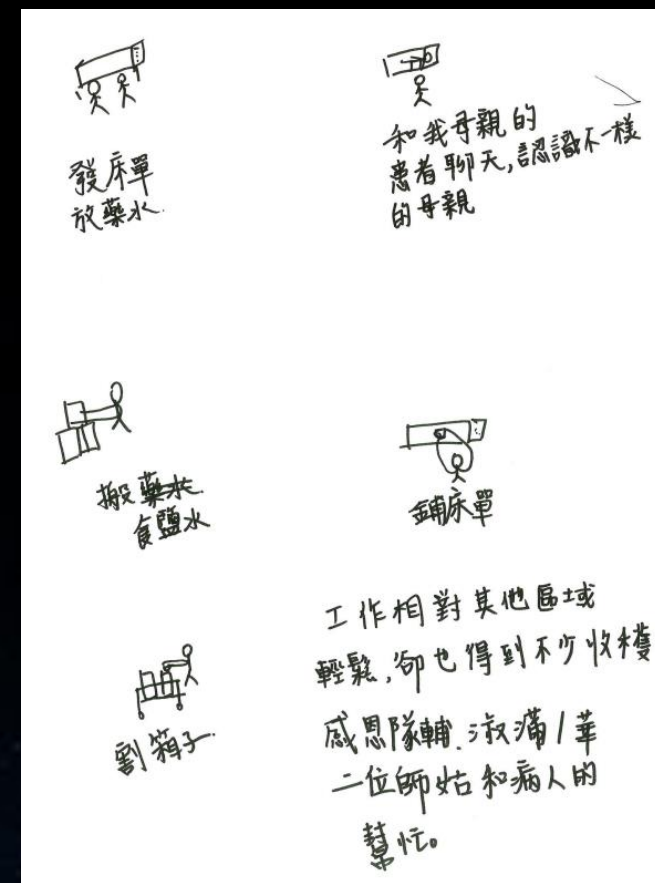 發床單
放藥水.
和我母親的
患者聊天,認識不一樣
的母親
搬藥水.
食鹽水
鋪床單
割箱子.
工作相對其他區域
輕鬆,卻也得到不少收穫
感恩隊輔.淑滿/華
二位師姑和病人的
幫忙。